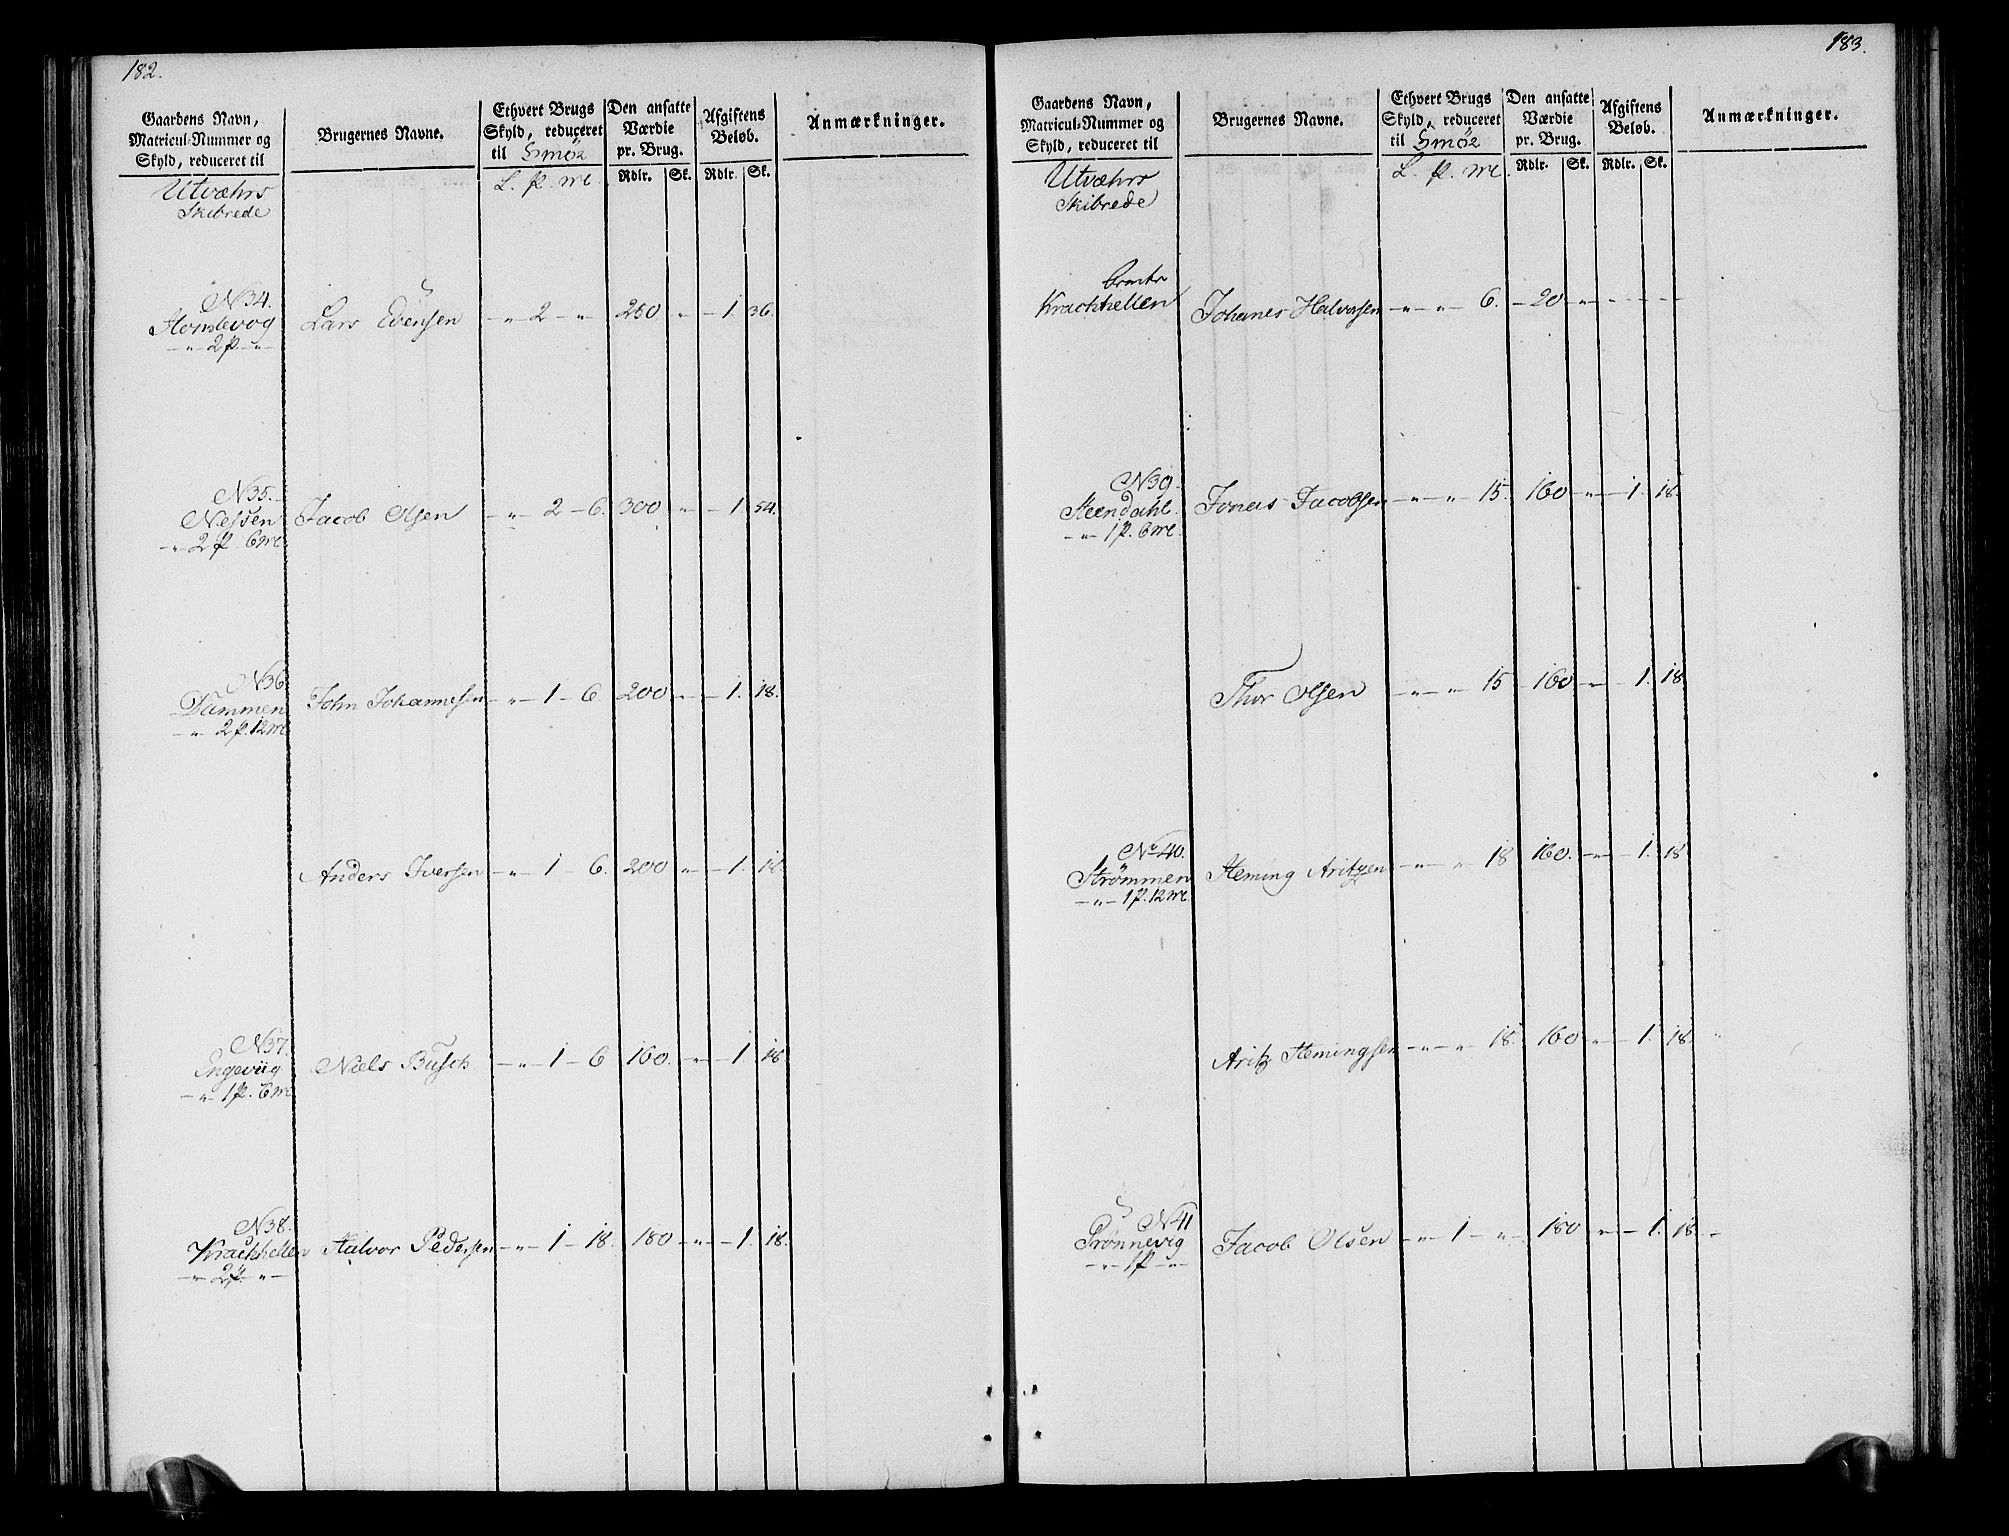 182.
Gaardens Navn,
Matricul-Nummer og
Skyld, reduceret til
Brugernes Navne.
Ethvert Brugs
Skyld, reduceret
til Smör
L. p. mk
Den ansatte
Værdie
pr. Brug.
Rdlr. Sk.
Afgiftens
Beløb.
Rdlr. Sk.
Anmærkninger.
Utvæhrs
Skibrede
N 34.
Lars Evensen - " 2 - " 250 " - 1. 36.
- " 2 p. - "
N 35.
Nessen Jacob Olsen - " 2 - 6. 300 " - 1. 54.
- " 2 p 6 mk
N 36
Dammen John Johannesen - " - 1 - 6. 200 - " - 1. 18.
- " 2 p. 12 mk
Anders Iversen - " - 1 - 6. 200 " - 1. 18.
N 37.
Engeviig Niels Busch - " - 1 - 6 160. " - 1. 18
- " - 1 p. 6 mk
N 38.
Krachhellen Halvor Pedersen - " - 1 - 18. 180 - " - 1. 18.
- " 2 p. - " -
183.
Gaardens Navn,
Matricul-Nummer og
Skyld, reduceret til
Brugernes Navne.
Ethvert Brugs
Skyld, reduceret
til Smör
L. p. mk
Den ansatte
Værdie
pr. Brug.
Rdlr. Sk.
Afgiftens
Beløb.
Rdlr. Sk.
Anmærkninger.
Utvæhrs
Skibrede
Krachhellen Johanes Halvorsen - " - " 6. - 20 - " - - - -
N 39.
Steendahl Jonas Jacobsen - " - " 15. 160 - " - 1. 18.
- " - 1 p. 6 mk
Thor Olsen - " - " 15 160 - " - 1. 18
No 40.
Strömmen Heming Aritzen - " - " 18 160. - " - 1. 18
- " - 1 p. 12 mk
Aritz Hemingsen - " - " 18. 160 - " - 1. 18
N 41
Prönnevig Jacob Olsen - " - 1 - " 180 " - 1. 18 -
- " - 1 p - " -